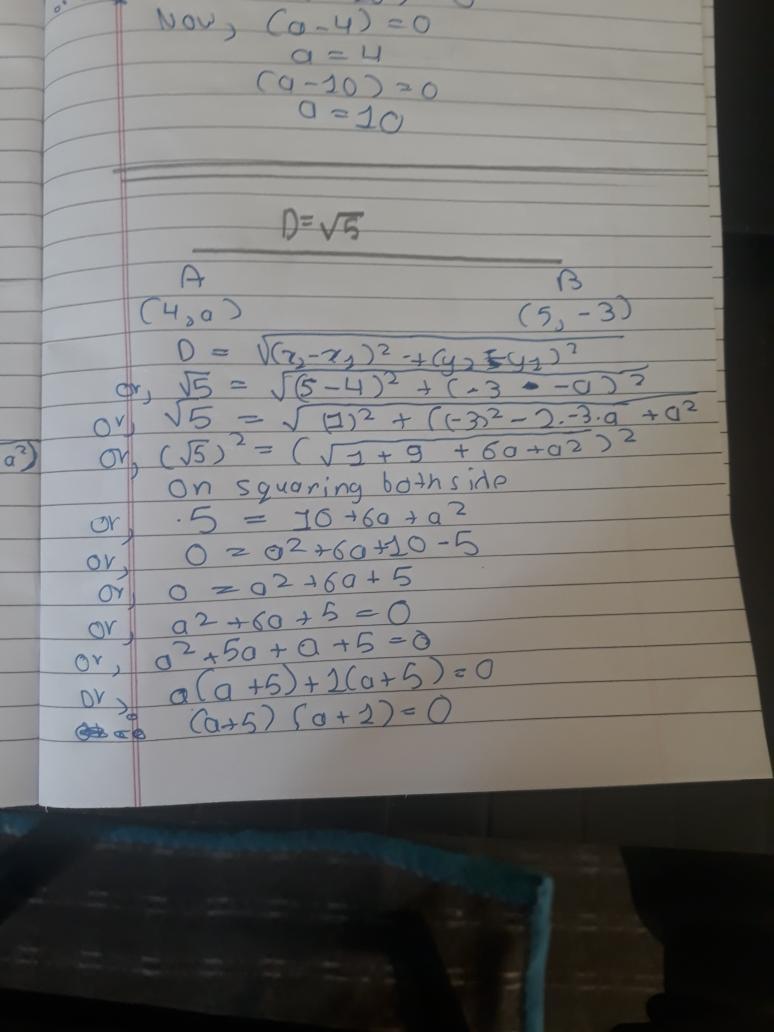 Now, (a-4) = 0
a = 4
(a-10) = 0
a = 10
D=√5
A B
(4,a) (5, -3)
D = √(x₂-x₁)² +(y₂-y₁)²
or, √5 = √(5-4)² + (-3 - a)²
or, √5 = √(1)² + ((-3)² - 2.-3.a + a²
or, (√5)² = (√1+9 + 6a+a²)²
a²)
On squaring bothside
or, .5 = 10+6a+a²
or, 0 = a²+6a+10-5
or, 0 = a²+6a+5
or, a²+6a+5=0
or, a²+5a+a+5=0
or, a(a+5)+1(a+5)=0
(a+5) (a+1)=0